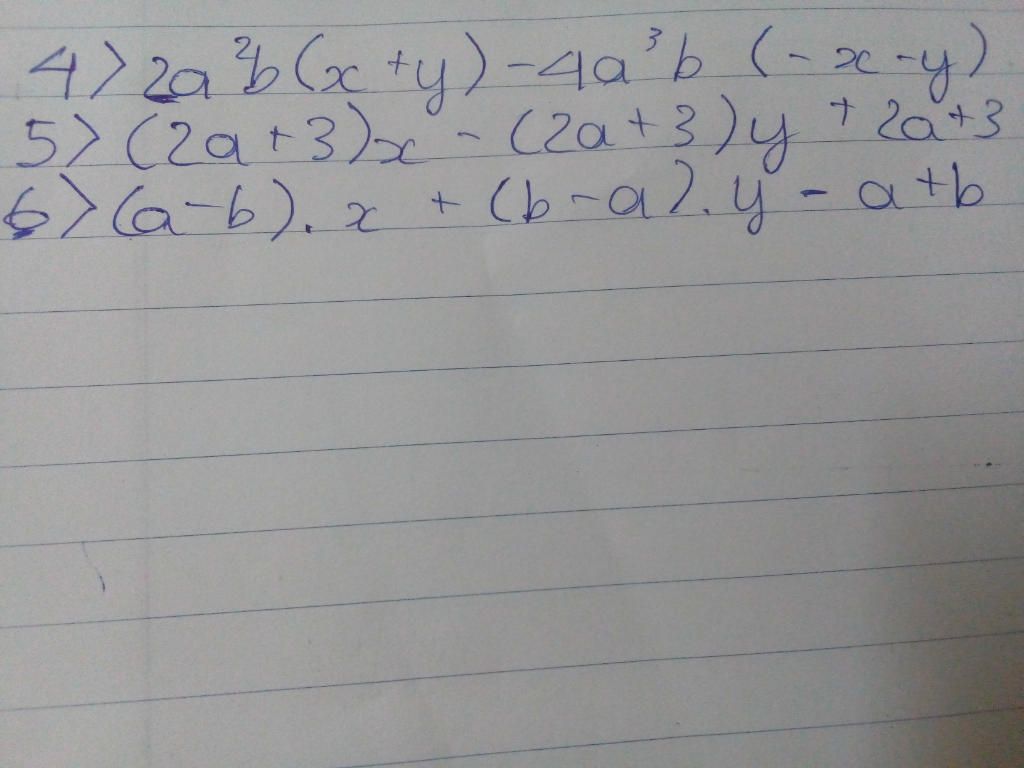 4> 2a²b (x+y) - 4a³b (-x-y)
5> (2a+3)x - (2a+3)y + 2a+3
6> (a-b). x + (b-a). y - a+b